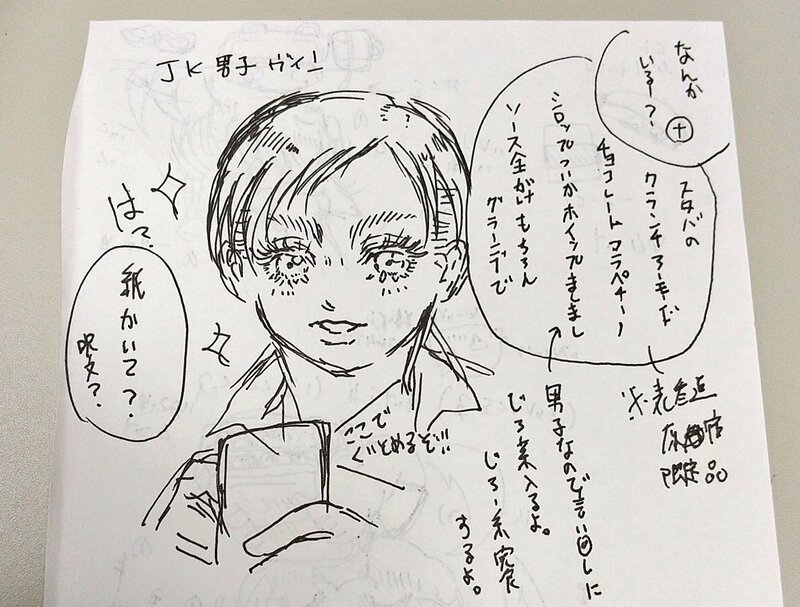 JK男子
なんか
いるー？
十
スタバの
クランチアーモンド
チョコレートフラペチーノ
シロップついかホイップましまし
ソース全がけもちろん
グラーンデで
※表参道
店
限定品
はっ、
紙かいて？
呪文？
ここで
くいとめるぞ!!
男子なので言い回しに
じろー系入るよ。
じろー系完食
するよ。